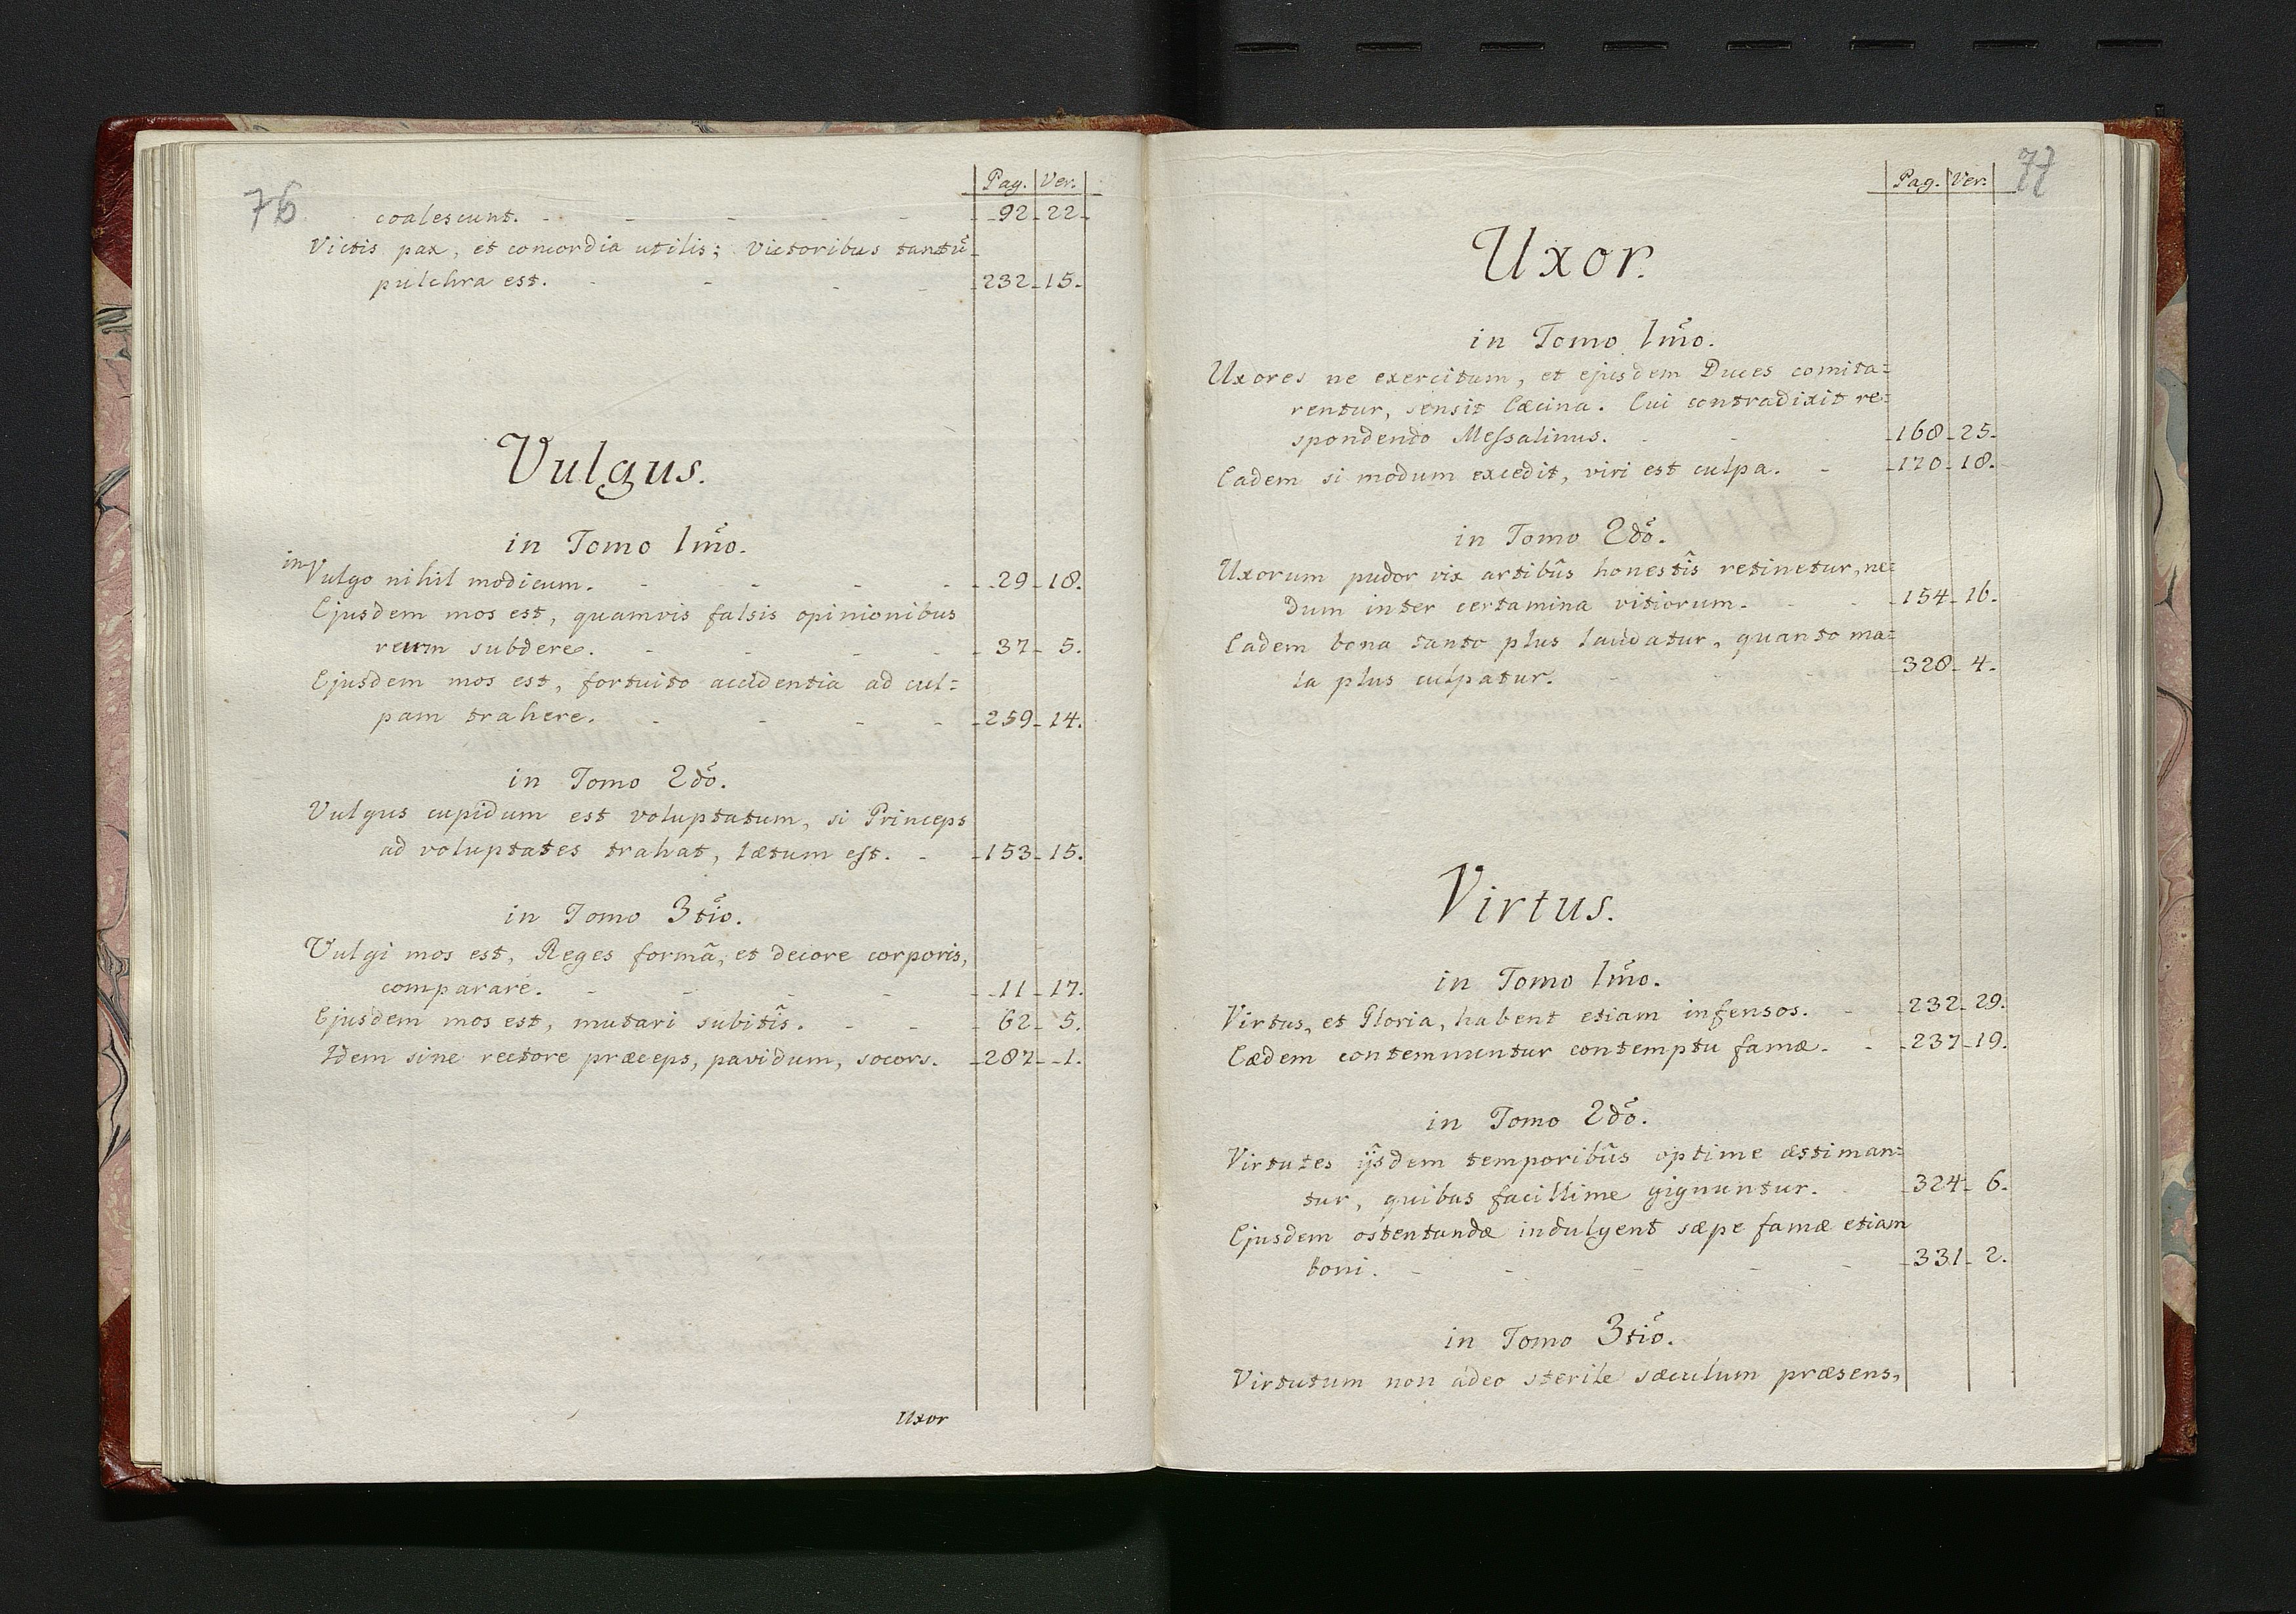 76
Pag. Ver.
coalescunt. - - - - - 92 - 22 -
Victis pax, et concordia utilis; Victoribus tantũ
pulchra est. - - - - 232 - 15 -
Vulgus.
in Tomo 1mõ.
in Vulgo nihil modicum. - - - - 29 - 18.
Ejusdem mos est, quamvis falsis opinionibus
reum subdere. - - - - 37 - 5.
Ejusdem mos est, fortuito accidentia ad cul=
pam trahere. - - - - 259 - 14.
in Tomo 2dõ.
Vulgus cupidum est voluptatum, si Princeps
ad voluptates trahat, lætum est. - 153 - 15.
in Tomo 3tiõ.
Vulgi mos est, Reges formâ, et decore corporis,
comparare. - - - - 11 - 17.
Ejusdem mos est, mutari subitîs. - - 62 - 5.
Idem sine rectore præceps, pavidum, socors. - 287 - 1.
Uxor
77
Pag. Ver.
Uxor.
in Tomo 1mõ.
Uxores ne exercitum, et ejusdem Duces comita=
rentur, sensit Cæcina. Cui contradixit re=
spondendo Meſsalinus. - - 168 - 25 -
Eadem si modum excedit, viri est culpa. - 170 - 18.
in Tomo 2dõ.
Uxorum pudor vix artibûs honestîs retinetur, ne=
dum inter certamina vitiorum. - - 154 - 16.
Eadem bona tanto plus laudatur, quanto ma=
la plus culpatur. - - - 328 - 4.
Virtus.
in Tomo 1mõ.
Virtus, et Gloria, habent etiam infensos. - 232 - 29.
Eædem contemnuntur contemptu famæ. - 237 - 19.
in Tomo 2dõ.
Virtutes ijsdem temporibûs optime æstiman=
tur, quibus facillime gignuntur. - 324 - 6.
Ejusdem ostentandæ indulgent sæpe famæ etiam
boni. - - - - 331 - 2.
in Tomo 3tiõ.
Virtutum non adeo sterile sæculum præsens,